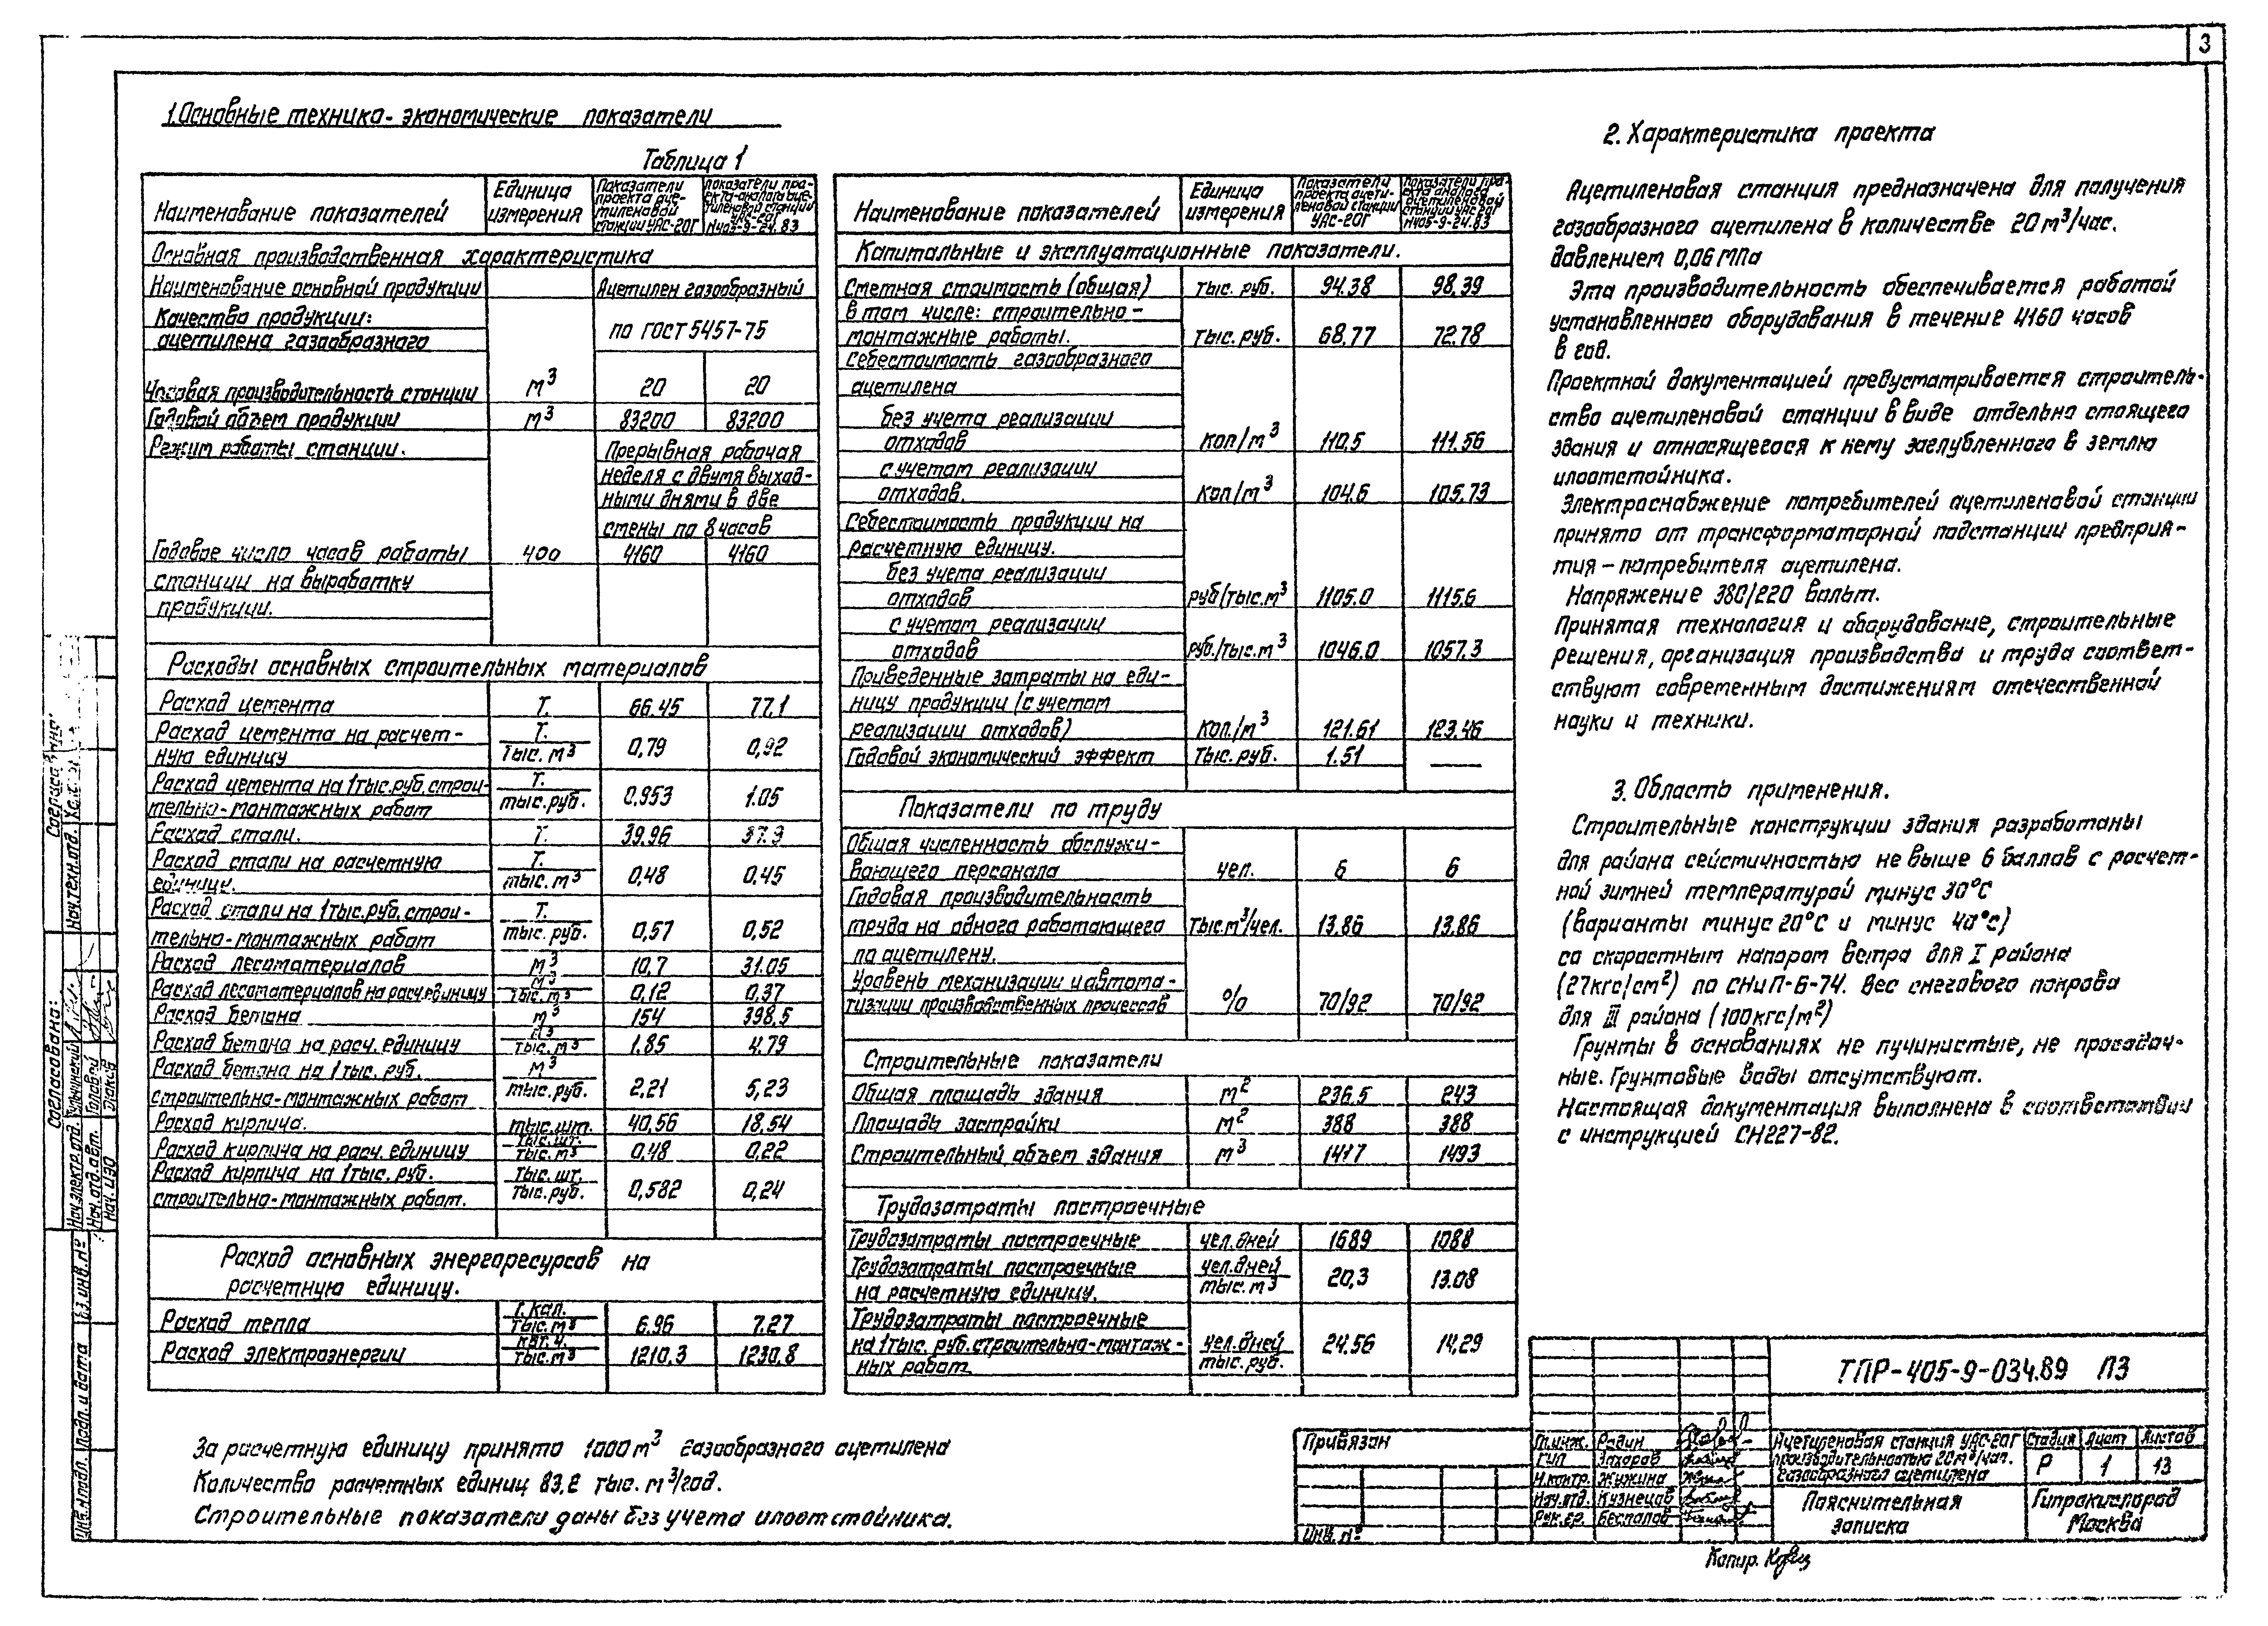 3
1. Основные технико-экономические показатели
Таблица 1
Наименование показателей
Единица измерения
Показатели проекта ацетиленовой станции УАС-20Г
Показатели проекта-аналога ацетиленовой станции УАС-20Г №405-9-24.83
Основная производственная характеристика
Наименование основной продукции Ацетилен газообразный
Качество продукции: по ГОСТ 5457-75
ацетилена газообразного
Часовая производительность станции м³ 20 20
Годовой объем продукции м³ 83200 83200
Режим работы станции. Прерывная рабочая
неделя с двумя выход-
ными днями в две
смены по 8 часов
Годовое число часов работы час 4160 4160
станции на выработку
продукции.
Расходы основных строительных материалов
Расход цемента Т. 66.45 77.1
Расход цемента на расчет-
ную единицу Т./тыс. м³ 0,79 0,92
Расход цемента на 1 тыс. руб. строи-
тельно-монтажных работ Т./тыс. руб. 0,953 1.05
Расход стали. Т. 39.96 37.9
Расход стали на расчетную
единицу. Т./тыс. м³ 0,48 0,45
Расход стали на 1 тыс. руб. строи-
тельно-монтажных работ Т./тыс. руб. 0,57 0,52
Расход лесоматериалов м³ 10,7 31.05
Расход лесоматериалов на расч. единицу м³/тыс. м³ 0,12 0,37
Расход бетона м³ 154 398,5
Расход бетона на расч. единицу м³/тыс. м³ 1.85 4.79
Расход бетона на 1 тыс. руб.
строительно-монтажных работ м³/тыс. руб. 2,21 5,23
Расход кирпича. тыс. шт. 40,56 18,54
Расход кирпича на расч. единицу тыс. шт./тыс. м³ 0,48 0,22
Расход кирпича на 1 тыс. руб.
строительно-монтажных работ. тыс. шт./тыс. руб. 0,582 0,24
Расход основных энергоресурсов на
расчетную единицу.
Расход тепла Г. кал./тыс. м³ 6.96 7.27
Расход электроэнергии квт. ч./тыс. м³ 1210,3 1230,8
За расчетную единицу принято 1000 м³ газообразного ацетилена
Количество расчетных единиц 83.2 тыс. м³/год.
Строительные показатели даны без учета илоотстойника.
Наименование показателей
Единица измерения
Показатели проекта ацетиленовой станции УАС-20Г
Показатели проекта аналога ацетиленовой станции УАС-20Г №405-9-24.83
Капитальные и эксплуатационные показатели.
Сметная стоимость (общая) тыс. руб. 94.38 98.39
в том числе: строительно-
монтажные работы. тыс. руб. 68,77 72.78
Себестоимость газообразного
ацетилена
без учета реализации
отходов коп/м³ 110,5 111.56
с учетом реализации
отходов. коп/м³ 104.6 105.73
Себестоимость продукции на
расчетную единицу.
без учета реализации
отходов руб/тыс. м³ 1105.0 1115.6
с учетом реализации
отходов руб./тыс. м³ 1046.0 1057.3
Приведенные затраты на еди-
ницу продукции (с учетом
реализации отходов) коп./м³ 121.61 123.46
Годовой экономический эффект тыс. руб. 1.51 —
Показатели по труду
Общая численность обслужи-
вающего персонала чел. 6 6
Годовая производительность
труда на одного работающего тыс. м³/чел. 13.86 13.86
по ацетилену.
Уровень механизации и автома-
тизации производственных процессов % 70/92 70/92
Строительные показатели
Общая площадь здания м² 236.5 243
Площадь застройки м² 388 388
Строительный объем здания м³ 1417 1493
Трудозатраты построечные
Трудозатраты построечные чел. дней 1689 1088
Трудозатраты построечные
на расчетную единицу. чел. дней/тыс. м³ 20,3 13.08
Трудозатраты построечные
на 1 тыс. руб. строительно-монтаж-
ных работ. чел. дней/тыс. руб. 24.56 14,29
2. Характеристика проекта
Ацетиленовая станция предназначена для получения
газообразного ацетилена в количестве 20 м³/час.
давлением 0,06 МПа
Эта производительность обеспечивается работой
установленного оборудования в течение 4160 часов
в год.
Проектной документацией предусматривается строитель-
ство ацетиленовой станции в виде отдельно стоящего
здания и относящегося к нему заглубленного в землю
илоотстойника.
Электроснабжение потребителей ацетиленовой станции
принято от трансформаторной подстанции предприя-
тия – потребителя ацетилена.
Напряжение 380/220 вольт.
Принятая технология и оборудование, строительные
решения, организация производства и труда соответ-
ствуют современным достижениям отечественной
науки и техники.
3. Область применения.
Строительные конструкции здания разработаны
для района сейсмичностью не выше 6 баллов с расчет-
ной зимней температурой минус 30°С
(варианты минус 20°С и минус 40°С)
со скоростным напором ветра для I района
(27кгс/см²) по СНиП-6-74. Вес снегового покрова
для III района (100кгс/м²)
Грунты в основаниях не пучинистые, не просадоч-
ные. Грунтовые воды отсутствуют.
Настоящая документация выполнена в соответствии
с инструкцией СН227-82.
ТПР-405-9-034.89 ПЗ
Привязан
Инв. №
Гл. инж. Родин
ГИП Захаров
Н. контр. Жужина
Нач. отд. Кузнецов
Рук. гр. Беспалов
Ацетиленовая станция УАС-20Г
производительностью 20 м³/час.
газообразного ацетилена
Стадия Лист Листов
Р 1 13
Пояснительная
записка
Гипрокислород
Москва
Копир.
Согласовано:
Нач. техн. отд.
Согласовано:
Нач. электр. отд.
Нач. отд. авт. Головой
Нач. ЦЭО Дьяков
Вз. инв. №
Подп. и дата
Инв. № подл.
Подп.